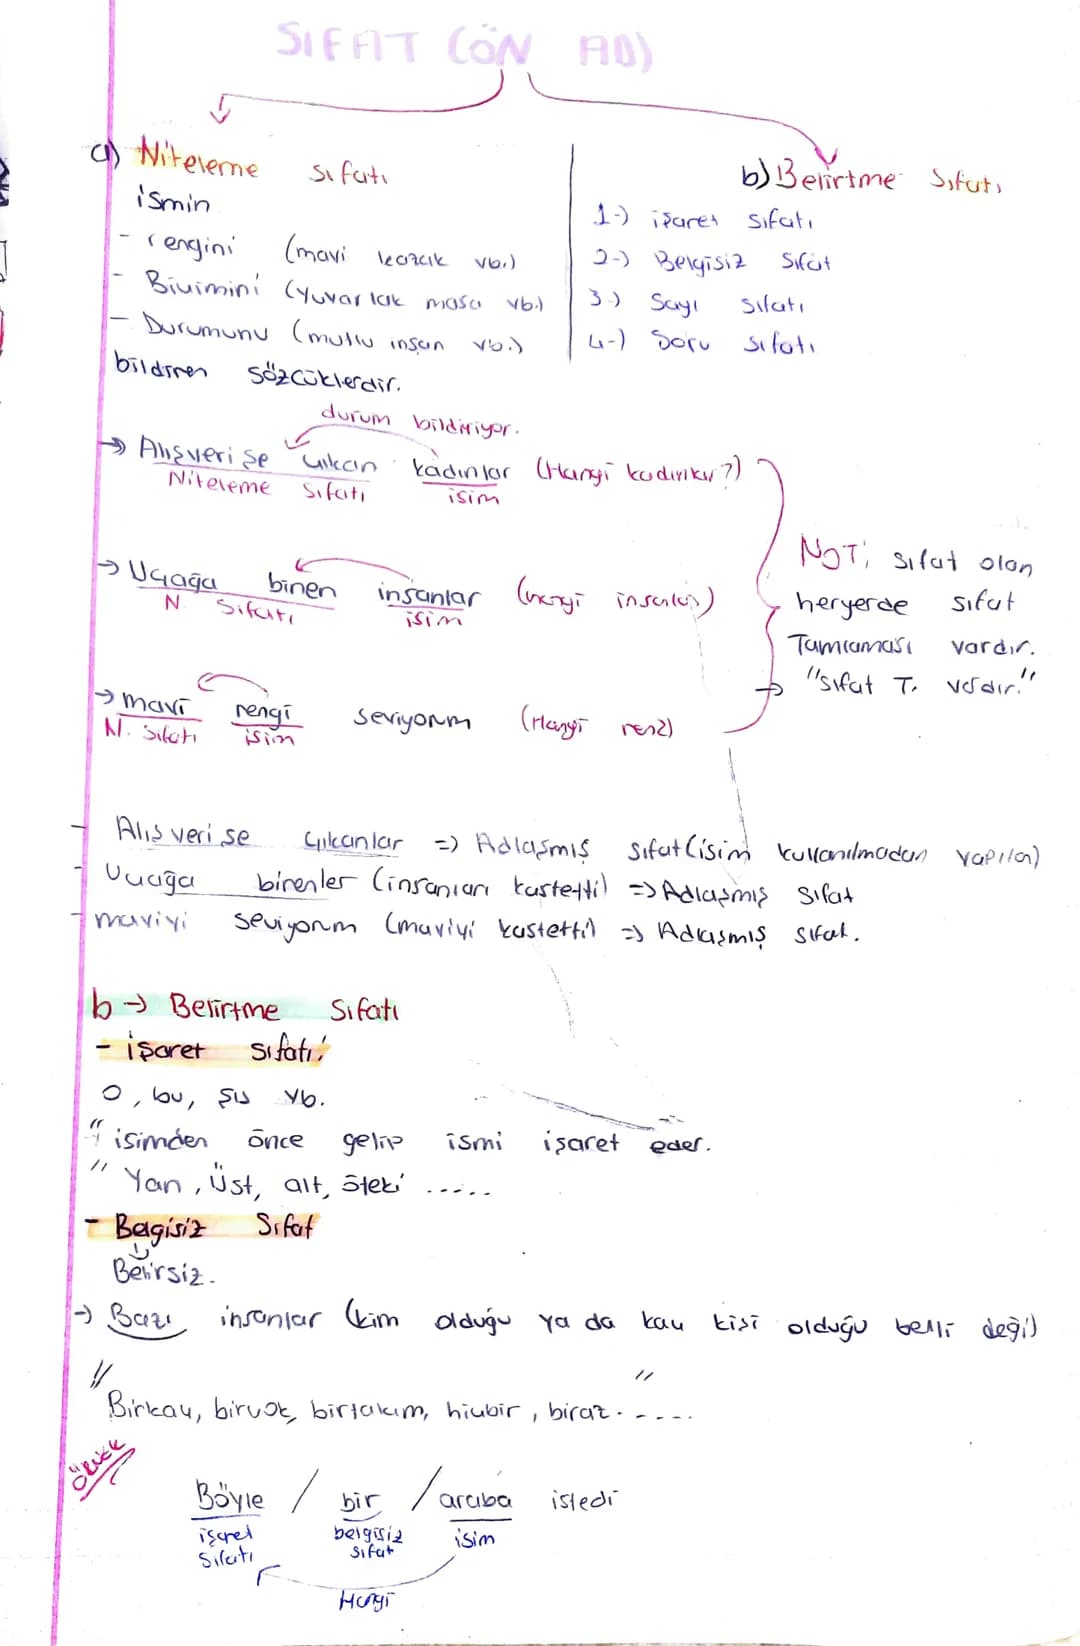 SIFAT (ÖN AD)
a) Niteleme sıfatı
ismin
- rengini (mavi kazak vb.)
- Biçimini (yuvarlak masa vb.)
- Durumunu (mutlu insan vb.)
bildiren sözcüklerdir.
b) Belirtme Sıfatı
1-) işaret sıfatı
2-) Belgisiz Sıfat
3-) Sayı sıfatı
4-) Soru sıfatı
durum bildiriyor.
→ Alışverişe çıkan kadınlar (Hangi kadınlar?)
Niteleme Sıfatı isim
→ Uçağa binen insanlar (hangi insanlar)
N. Sıfatı isim
→ mavi rengi seviyorum (Hangi renk)
N. Sıfatı isim
NOT; sıfat olan
heryerde sıfat
Tamlaması vardır.
→ "Sıfat T. vardır."
- Alışverişe çıkanlar => Adlaşmış sıfat (isim kullanılmadan yapılan)
- Uçağa binenler (insanları kastetti) => Adlaşmış sıfat
- maviyi seviyorum (maviyi kastetti) => Adlaşmış sıfat.
b → Belirtme Sıfatı
- işaret sıfatı:
O, bu, şu vb.
" isimden önce gelip ismi işaret eder. "
" Yan, Üst, alt, öteki .....
- Belgisiz Sıfat
Belirsiz.
→ Bazı insanlar (kim olduğu ya da kaç kişi olduğu belli değil)
" Birkaç, birçok, birtakım, hiçbir, biraz..... "
Örnek
Böyle / bir / araba istedi
işaret sıfatı belgisiz sıfat isim
Hangi